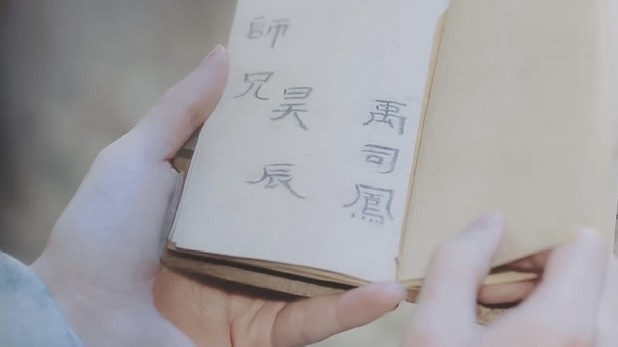 禹司鳳
師兄昊辰